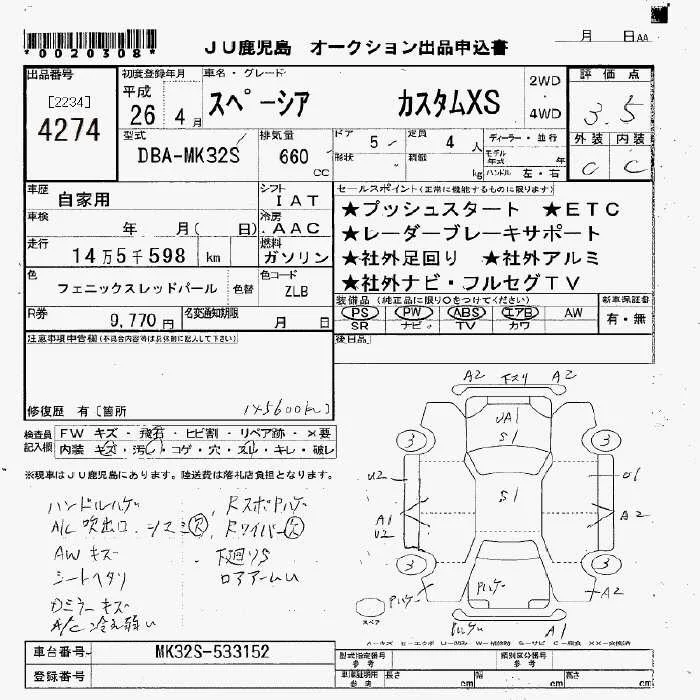 *0020308*
JU鹿児島 オークション出品申込書
月 日AA
出品番号
[2234]
4274
初度登録年月
平成
26 4月
車名・グレード
スペーシア カスタムXS
2WD
4WD
評価点
3.5
外装 内装
C C
型式
DBA-MK32S
排気量
660 CC
ドア 5
形状
定員 4 人
積載 kg
ディーラー・並行
モデル年式 年
ハンドル 左・右
車歴 自家用
シフト IAT
車検 年 月( 日)
冷房 AAC
走行 14万5千598 km
燃料 ガソリン
色 フェニックスレッドパール 色替
色コード ZLB
R券 9,770円
名変通知期限 月 日
セールスポイント(正常に機能するものに限ります)
★プッシュスタート ★ETC
★レーダーブレーキサポート
★社外足回り ★社外アルミ
★社外ナビ・フルセグTV
装備品(純正品に限り○をつけてください)
PS PW ABS エアB AW
SR ナビ TV カワ
新車保証書
有・無
注意事項申告欄(不具合内容等は具体的に記入して下さい)
後日品
修復歴 有[箇所 145600km]
検査員記入欄
FW キズ・飛石・ヒビ割・リペア跡・×要
内装 キズ・汚れ・コゲ・穴・スレ・キレ・破レ
※現車はJU鹿児島にあります。陸送費は落札店負担となります。
ハンドルハゲ
A/C 吹出口、シフミ欠
AWキズ
シートヘタリ
Dミラーキズ
A/C 冷え弱い
Rスポハゲ
Rワイパー欠
下廻りS
ロアアームU
A2 下スリ A2
UA1
S1
3 3
U2 U1
S1
A1
U2
A2
3 3
Pハゲ
Pハゲ
A2
Pハゲ A1
スペア
車台番号 MK32S-533152
登録番号
型式指定番号 参考
類別区分番号 参考
車庫証明用 参考 長さ cm 幅 cm 高さ cm